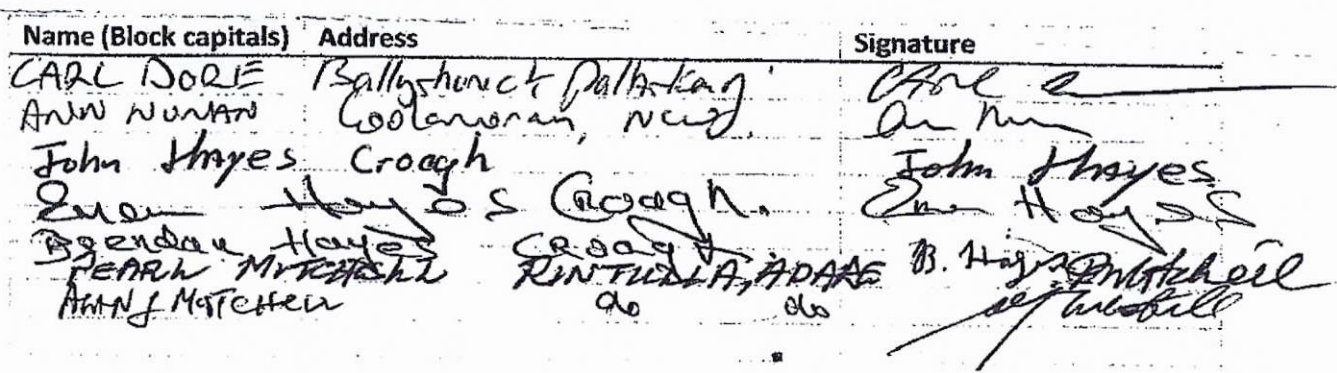 Name (Block capitals) Address Signature
CARL DORE Carl
ANN NUNAN Coolanoran,
John Hayes Croagh John Hayes
Hayes Croagh. Hayes
Brendan Hayes Croagh B. Hayes
PEARL MITCHELL RINTULLA, ADARE PMitchell
ANN J MITCHELL do do